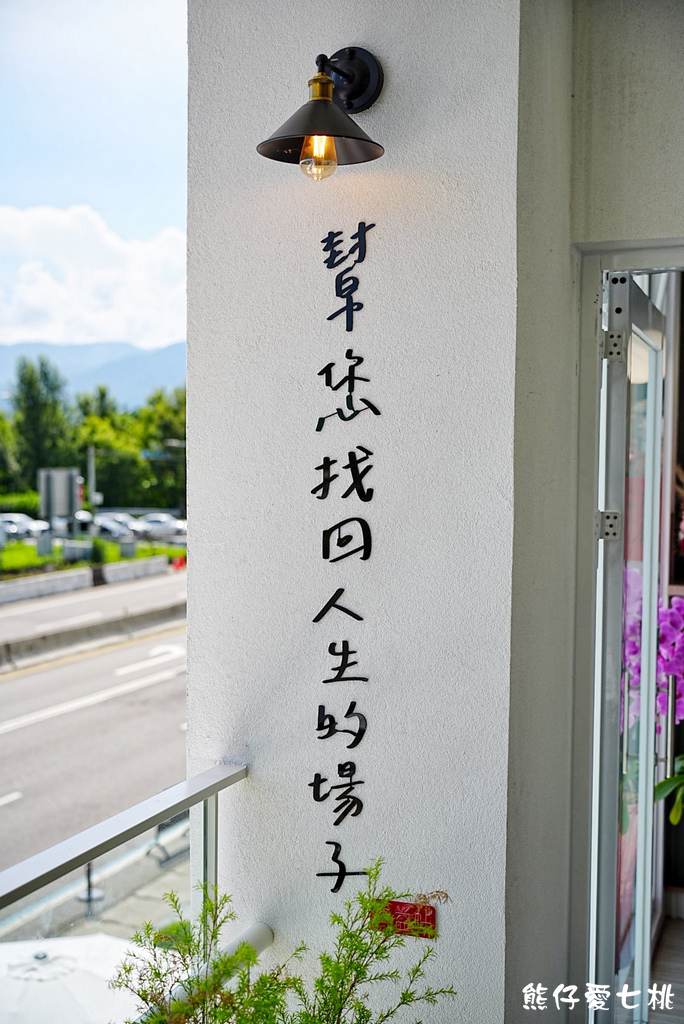 幫您找回人生的場子
熊仔愛七桃